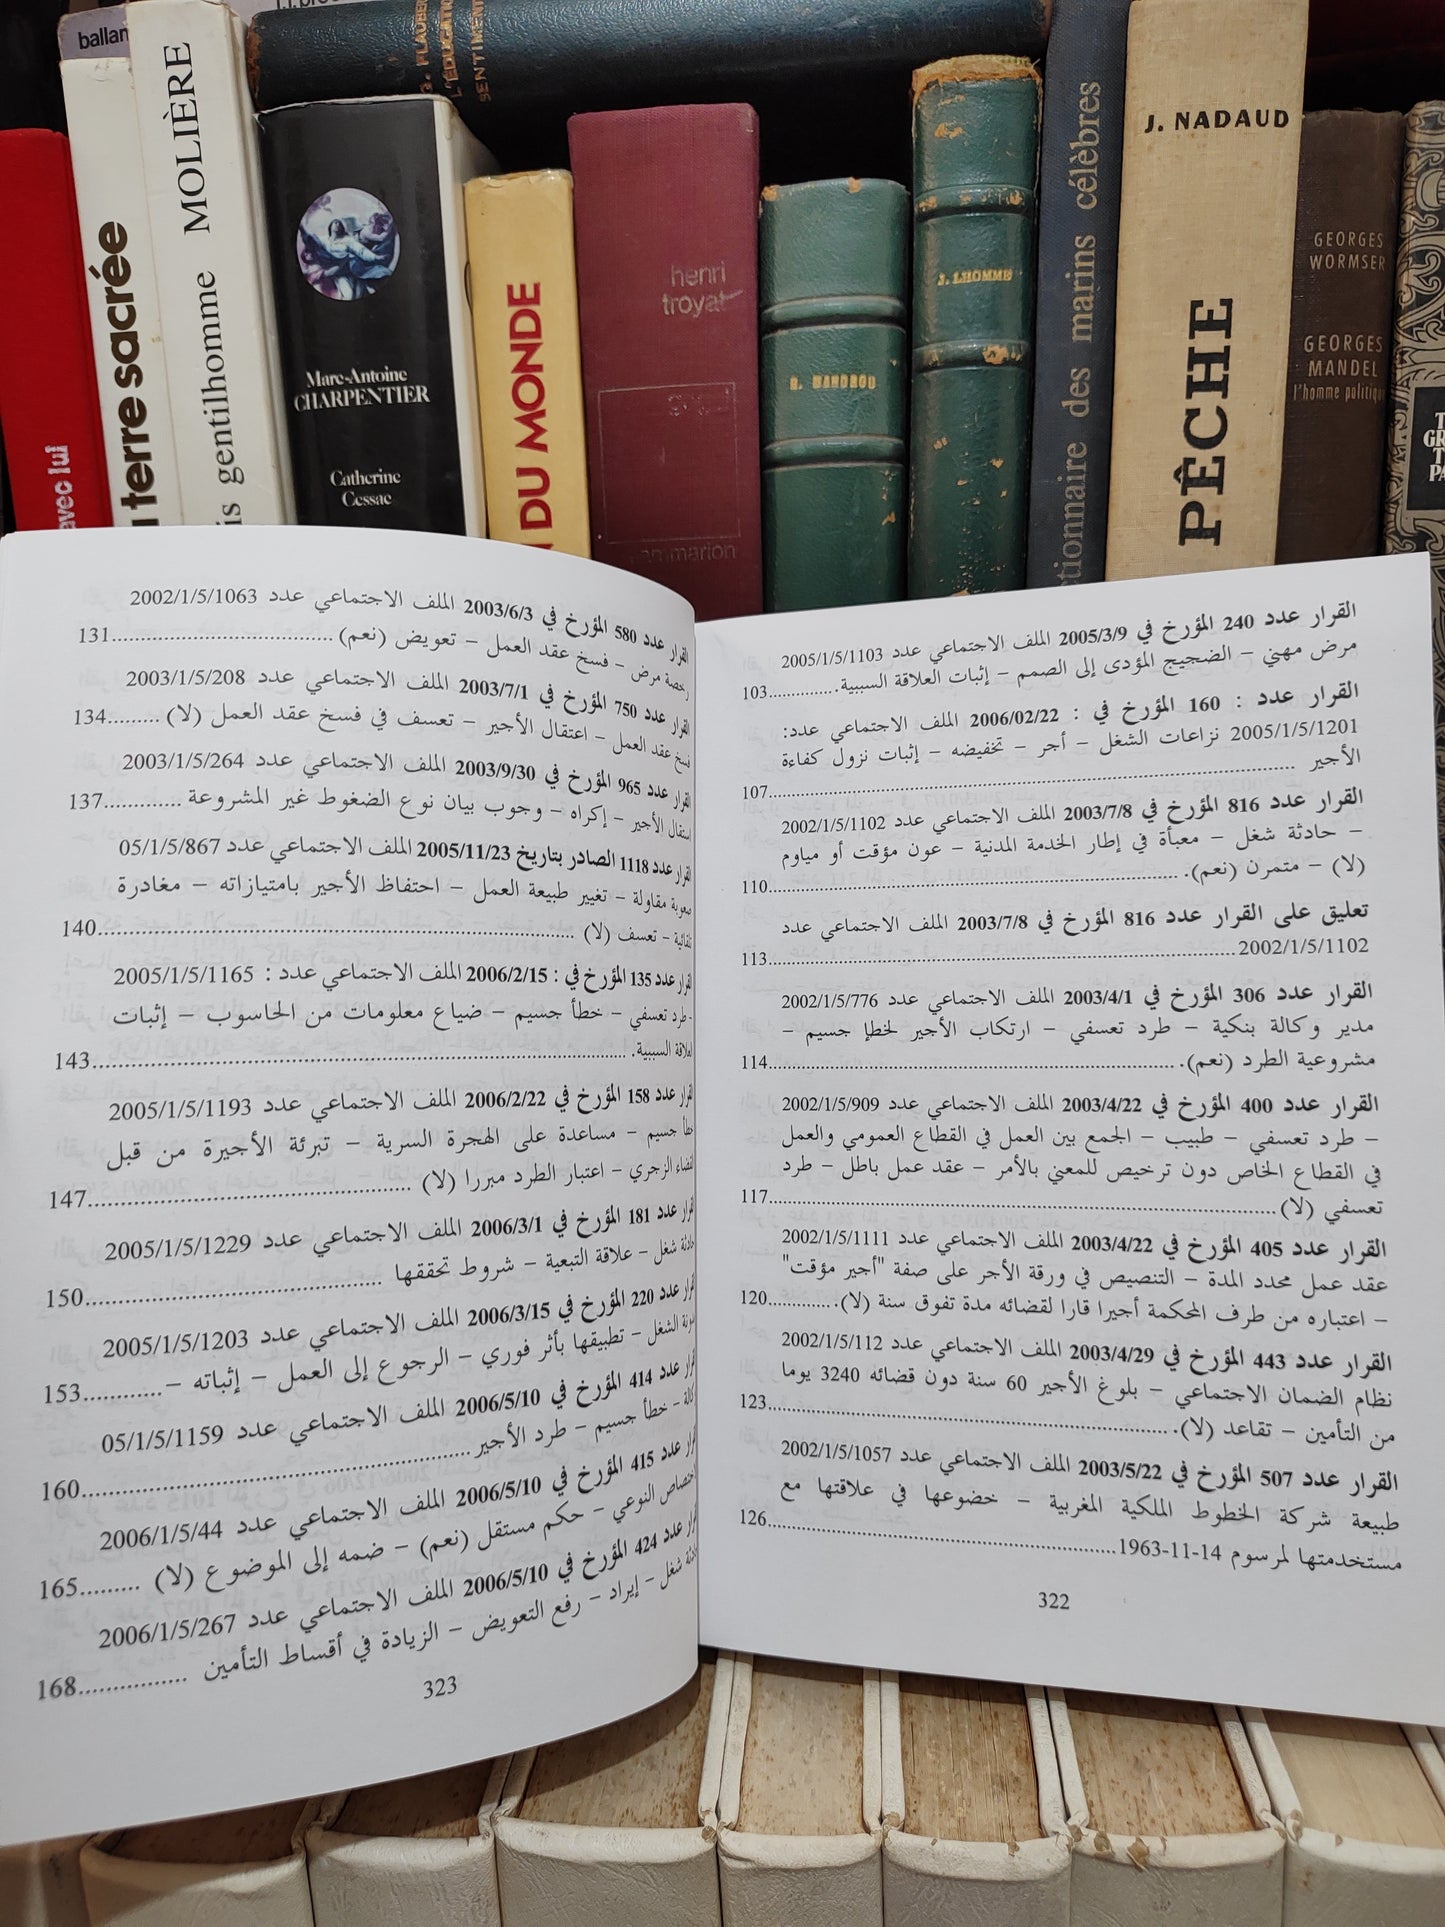 ballan
MOLIÈRE
is gentilhomme
terre sacrée
avec lui
G. FLAUBERT
L'ÉDUCATION
SENTIMENT
Marc-Antoine
CHARPENTIER
Catherine
Cessac
DU MONDE
henri
troyat
R. MANDROU
J. LHOMME
ctionnaire des marins célèbres
J. NADAUD
PÊCHE
GEORGES
WORMSER
GEORGES
MANDEL
l'homme politique
القرار عدد 240 المؤرخ في 2005/3/9 الملف الاجتماعي عدد 2005/1/5/1103
مرض مهني – الضجيج المؤدى إلى الصمم – إثبات العلاقة السببية..............103
القرار عدد : 160 المؤرخ في : 2006/02/22 الملف الاجتماعي عدد:
2005/1/5/1201 نزاعات الشغل – أجر – تخفيضه – إثبات نزول كفاءة
الأجير ..............................107
القرار عدد 816 المؤرخ في 2003/7/8 الملف الاجتماعي عدد 2002/1/5/1102
– حادثة شغل – معبأة في إطار الخدمة المدنية – عون مؤقت أو مياوم
(لا) – متمرن (نعم). ..............................110
تعليق على القرار عدد 816 المؤرخ في 2003/7/8 الملف الاجتماعي عدد
2002/1/5/1102..............................113
القرار عدد 306 المؤرخ في 2003/4/1 الملف الاجتماعي عدد 2002/1/5/776
مدير وكالة بنكية – طرد تعسفي – ارتكاب الأجير لخطإ جسيم –
مشروعية الطرد (نعم). ..............................114
القرار عدد 400 المؤرخ في 2003/4/22 الملف الاجتماعي عدد 2002/1/5/909
– طرد تعسفي – طبيب – الجمع بين العمل في القطاع العمومي والعمل
في القطاع الخاص دون ترخيص للمعني بالأمر – عقد عمل باطل – طرد
تعسفي (لا) ..............................117
القرار عدد 405 المؤرخ في 2003/4/22 الملف الاجتماعي عدد 2002/1/5/1111
عقد عمل محدد المدة – التنصيص في ورقة الأجر على صفة "أجير مؤقت"
– اعتباره من طرف المحكمة أجيرا قارا لقضائه مدة تفوق سنة (لا). ..............120
القرار عدد 443 المؤرخ في 2003/4/29 الملف الاجتماعي عدد 2002/1/5/112
نظام الضمان الاجتماعي – بلوغ الأجير 60 سنة دون قضائه 3240 يوما
من التأمين – تقاعد (لا). ..............................123
القرار عدد 507 المؤرخ في 2003/5/22 الملف الاجتماعي عدد 2002/1/5/1057
طبيعة شركة الخطوط الملكية المغربية – خضوعها في علاقتها مع
مستخدمتها لمرسوم 14-11-1963..............................126
322
القرار عدد 580 المؤرخ في 2003/6/3 الملف الاجتماعي عدد 2002/1/5/1063
رخصة مرض – فسخ عقد العمل – تعويض (نعم) ..............................131
القرار عدد 750 المؤرخ في 2003/7/1 الملف الاجتماعي عدد 2003/1/5/208
فسخ عقد العمل – اعتقال الأجير – تعسف في فسخ عقد العمل (لا) .........134
القرار عدد 965 المؤرخ في 2003/9/30 الملف الاجتماعي عدد 2003/1/5/264
استقال الأجير – إكراه – وجوب بيان نوع الضغوط غير المشروعة .............137
القرار عدد 1118 الصادر بتاريخ 2005/11/23 الملف الاجتماعي عدد 05/1/5/867
صعوبة مقاولة – تغيير طبيعة العمل – احتفاظ الأجير بامتيازاته – مغادرة
تلقائية – تعسف (لا) ..............................140
القرار عدد 135 المؤرخ في : 2006/2/15 الملف الاجتماعي عدد : 2005/1/5/1165
- طرد تعسفي – خطأ جسيم – ضياع معلومات من الحاسوب – إثبات
العلاقة السببية. ..............................143
القرار عدد 158 المؤرخ في 2006/2/22 الملف الاجتماعي عدد 2005/1/5/1193
خطأ جسيم – مساعدة على الهجرة السرية – تبرئة الأجيرة من قبل
القضاء الزجري – اعتبار الطرد مبررا (لا) ..............................147
القرار عدد 181 المؤرخ في 2006/3/1 الملف الاجتماعي عدد 2005/1/5/1229
حادثة شغل – علاقة التبعية – شروط تحققها ..............................150
القرار عدد 220 المؤرخ في 2006/3/15 الملف الاجتماعي عدد 2005/1/5/1203
مدونة الشغل – تطبيقها بأثر فوري – الرجوع إلى العمل – إثباته –............153
القرار عدد 414 المؤرخ في 2006/5/10 الملف الاجتماعي عدد 05/1/5/1159
– خطأ جسيم – طرد الأجير ..............................160
القرار عدد 415 المؤرخ في 2006/5/10 الملف الاجتماعي عدد 2006/1/5/44
اختصاص النوعي – حكم مستقل (نعم) – ضمه إلى الموضوع (لا) .........165
القرار عدد 424 المؤرخ في 2006/5/10 الملف الاجتماعي عدد 2006/1/5/267
حادثة شغل – إيراد – رفع التعويض – الزيادة في أقساط التأمين ................168
323